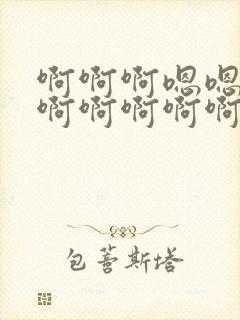 啊啊啊嗯嗯
啊啊啊啊啊
包薏斯塔